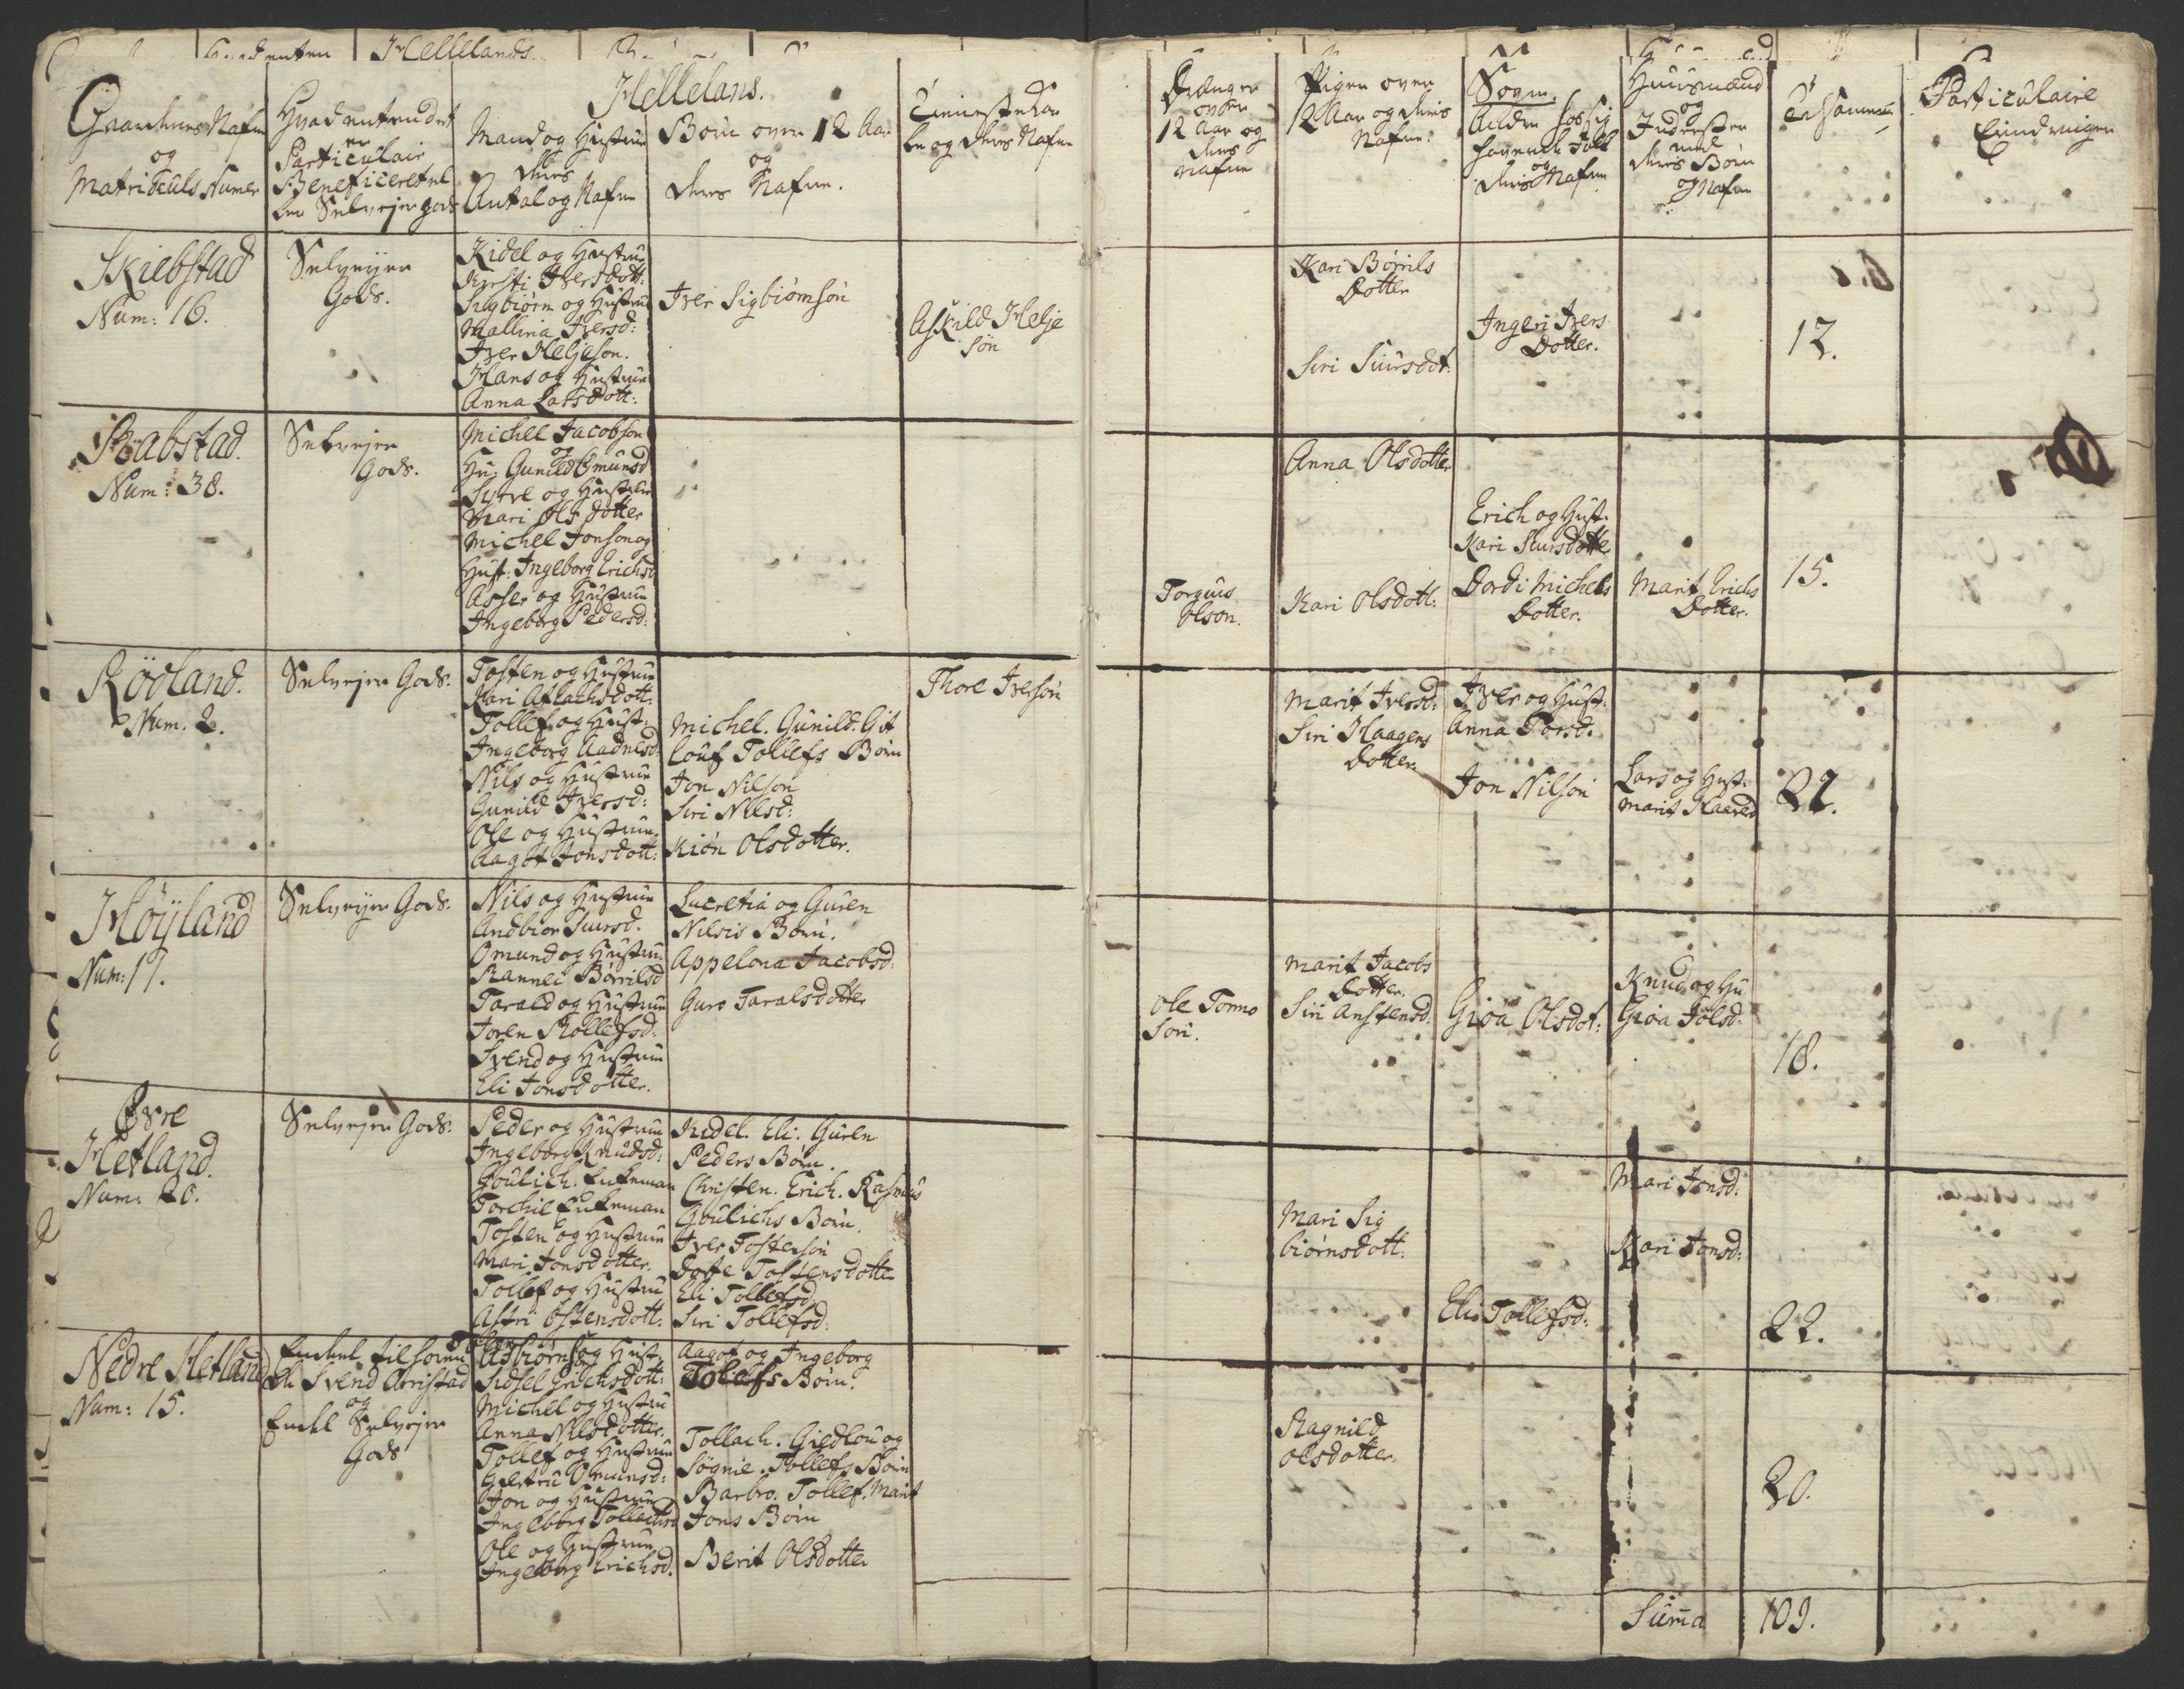 Hellelands
Hellelans.
Gaardenes Nafne
og
Matriculs Numer
Hvad enten det
er
Particulair
Beneficeret el
ler Selvejer gods
Mand og Hustrue
Deres
Antal og Nafne
Børn over 12 Aar
og
Deres Nafne.
Tieniste Kar
le og Deres Nafne
Drænger
over
12 Aar og
Deres
Nafne
Pigen over
12 Aar og Deres
Nafne.
Sogn.
Anden
Folk
og
Deris Nafne
Huusmænd
og
Inderster
med
Deris Børn
og Nafne
Tilsammen
Particulaire
Skiebstad
Num: 16.
Selvejer
Gods.
Kidel og Hustrue
Kirsti Iversdott:
Sigbiørn og Hustrue
Mallina Iversd:
Iver Heljeson.
Hans og Hustrue
Anna Larsdott:
Iver Sigbiørnsøn
Askild Helje
søn
Kari Børrils
Dotter
Siri Siursdot:
Ingeri Ivers
Dotter.
12.
Rabstad.
Num: 38.
Selvejer
Gods.
Michel Jacobson
og
Hu: Gunild Omunsd
Syvre og Hustrue
Mari Olsdotter
Michel Jonson og
Hust: Ingeborg Erichsd
Asser og Hustrue
Ingeborg Pedersd:
Torguls
Olson.
Anna Olsdotter
Kari Olsdott:
Erich og Hust.
Kari Siursdotter
Dordi Michels
Dotter.
Marit Erichs
Dotter.
15.
Rødland.
Num. 2.
Selvejer Gods.
Tosten og Hustrue
Kari Aslachsdott:
Tollef og Hust:
Ingeborg Aadnesd:
Nils og Hustrue
Gunild Iversd:
Ole og Hustrue
Aagot Jonsdott:
Michel. Gunild. Git
louf Tollefs Børn
Jon Nilson
Siri Nilsd:
Kiøn Olsdotter.
Thore Iversøn
Marit Iversd:
Siri Haagens
Dotter
Iver og Hust.
Anna Torsd:
Jon Nilsøn
Lars og Hust.
Marit Haavrd
22.
Høyland
Num: 17.
Selvejer Gods.
Nils og Hustrue
Andbior Siursd.
Omund og Hustrue
Rannei Børrilsd
Tarald og Hustrue
Joren Rollefsd.
Svend og Hustrue
Eli Jonsdotter.
Lucretia og Guren
Nilsis Børn.
Appelona Jacobsd:
Guro Taralsdotter
Ole Tonno
Søn.
Marit Jacobs
Dotter.
Siri Anstensd:
Giøa Olsdot:
Knud og Hu
Giøa Jolsd:
18.
Øvre
Hetland.
Num: 20.
Selvejer Gods.
Peder og Hustrue
Ingeborg Knudsd:
Goulich. Enkeman
Torchil Enkeman
Tosten og Hustrue
Mari Jonsdotter.
Tollef og Hustru
Astri Ostensdott.
Kidel. Eli. Guren
Peders Børn.
Christen. Erich. Rasmus
Goulichs Børn.
Iver Tosteson
Dorte Tostensdotter
Eli Tollefsd.
Siri Tollefsd.
Mari Sig
biørnsdott:
Eli Tollefsd:
Mari Jonsd:
Kari Jonsd:
22.
Nedre Hetland
Num: 15.
Svend Arristad
og
Selvejer
Gods
Asbiørn og Hust
Sidsel Erichsdott:
Michel og Hustru
Anna Nilsdotter.
Tollef og Hustrue
Giertru Omunsd:
Jon og Hustrue
Ingeborg Tollachsd
Ole og Hustrue
Ingeborg Erichsd.
Aagot og Ingeborg
Tolefs Børn.
Tollach. Giedlou og
Søgnie. Tollefs Børn
Barbro. Tollef. Marit
Jons Børn
Berit Olsdotter
Ragnild
Olsdotter.
20.
Suma
109.